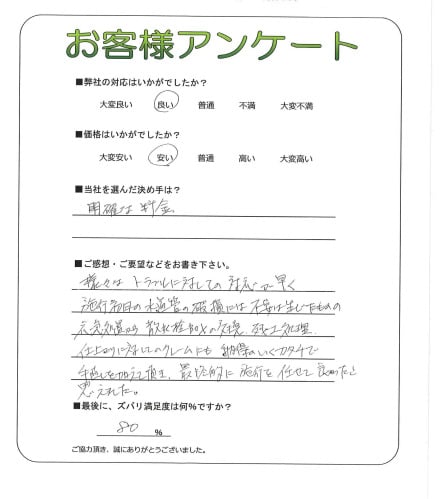 お客様アンケート
■弊社の対応はいかがでしたか？
大変良い 良い 普通 不満 大変不満
■価格はいかがでしたか？
大変安い 安い 普通 高い 大変高い
■当社を選んだ決め手は？
明確な料金
■ご感想・ご要望などをお書き下さい。
様々なトラブルに対しての対応が早く
施行初日の水道管の破損には不安は生じたものの
応急処置から散水栓BOXの交換、 処理、
仕上がりに対してのクレームにも納得のいくカタチで
手直しを加えて頂き、最終的に施行を任せて良かったと
思えれた。
■最後に、ズバリ満足度は何%ですか？
80 %
ご協力頂き、誠にありがとうございました。